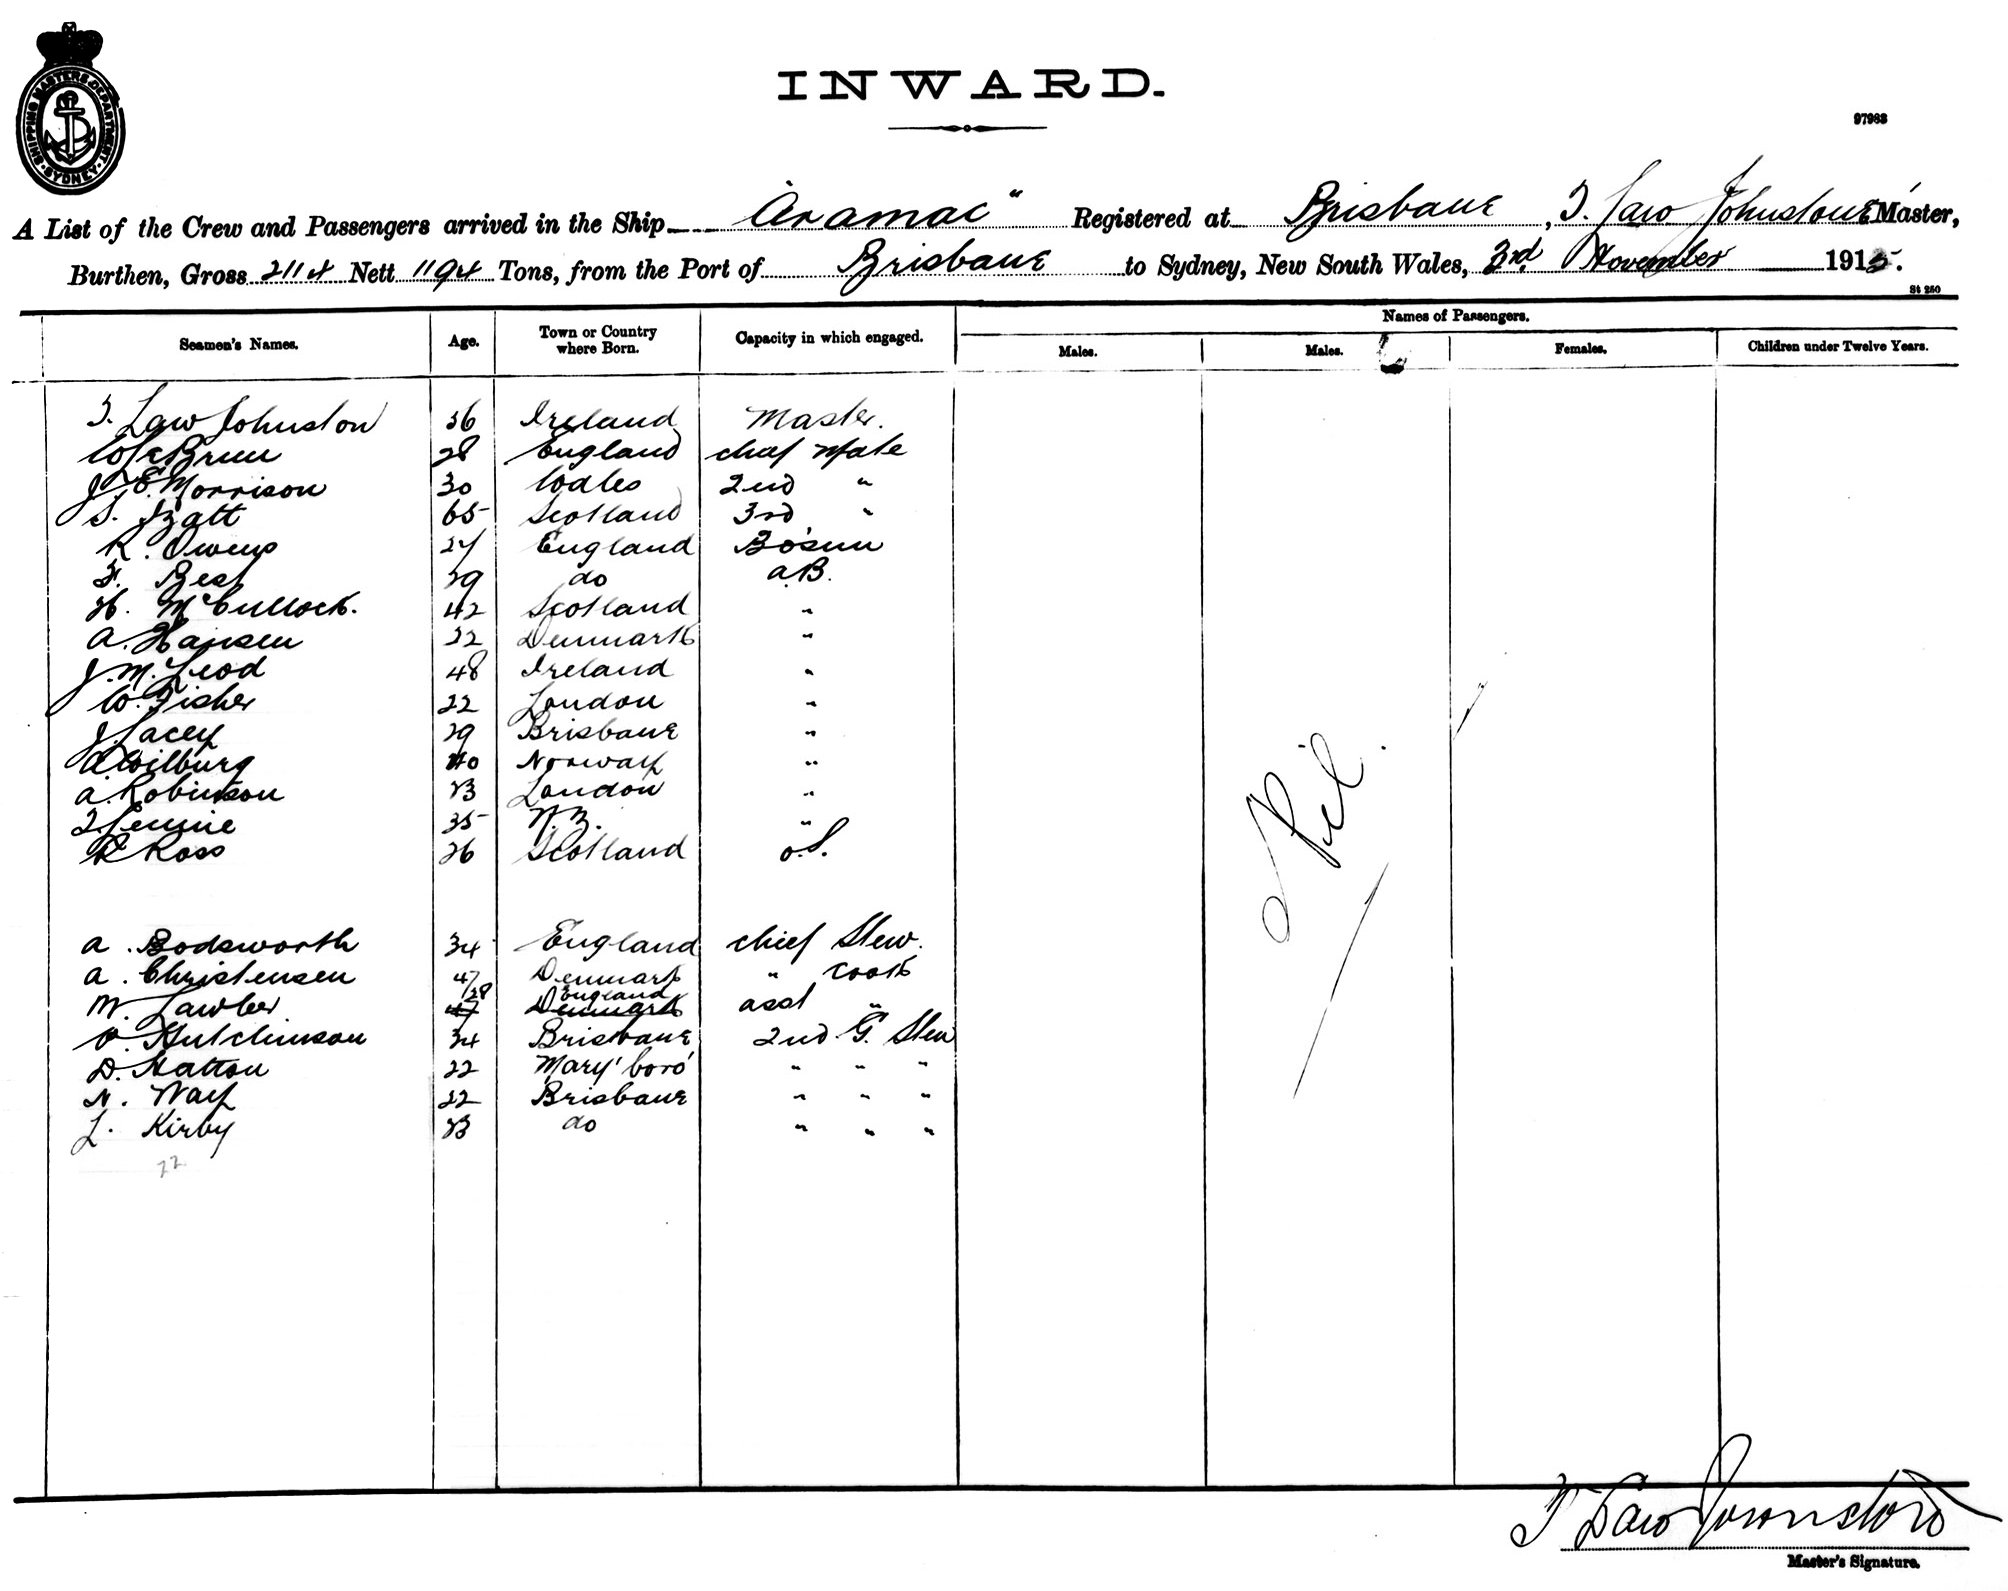 SHIPPING MASTERS DEPARTMENT
SYDNEY
INWARD.
97983
A List of the Crew and Passengers arrived in the Ship "Aramac" Registered at Brisbane, T. Law Johnstone Master,
Burthen, Gross 2114 Nett 1194 Tons, from the Port of Brisbane to Sydney, New South Wales, 3rd November 1915.
St 250
Seamen's Names. Age. Town or Country where Born. Capacity in which engaged. Names of Passengers.
Males. Males. Females. Children under Twelve Years.
T. Law Johnston 36 Ireland Master.
28 England chief Mate
J. E. Morrison 30 Wales 2nd "
S. Izatt 65 Scotland 3rd "
R. Owens 27 England Bosun
F. Best 29 do A.B.
H. McCullock. 42 Scotland "
A. Hansen 22 Denmark "
J. McLeod 48 Ireland "
W. Fisher 22 London "
J. Lacey 29 Brisbane "
A Wilburg 40 Norway "
A. Robinson 23 London "
T. Lennie 35 N.Z. "
R Ross 26 Scotland o.S.
A. Bodsworth 34 England chief Stew.
A. Christensen 47 Denmark " cook
M. Lawber 28 England asst "
47 Denmark
V. Hutchinson 34 Brisbane 2nd G. Stew
D. Hatton 22 Mary'boro' " " "
N. Way 22 Brisbane " " "
L. Kirby 23 do " " "
22
Nil.
T Law Johnston
Master's Signature.